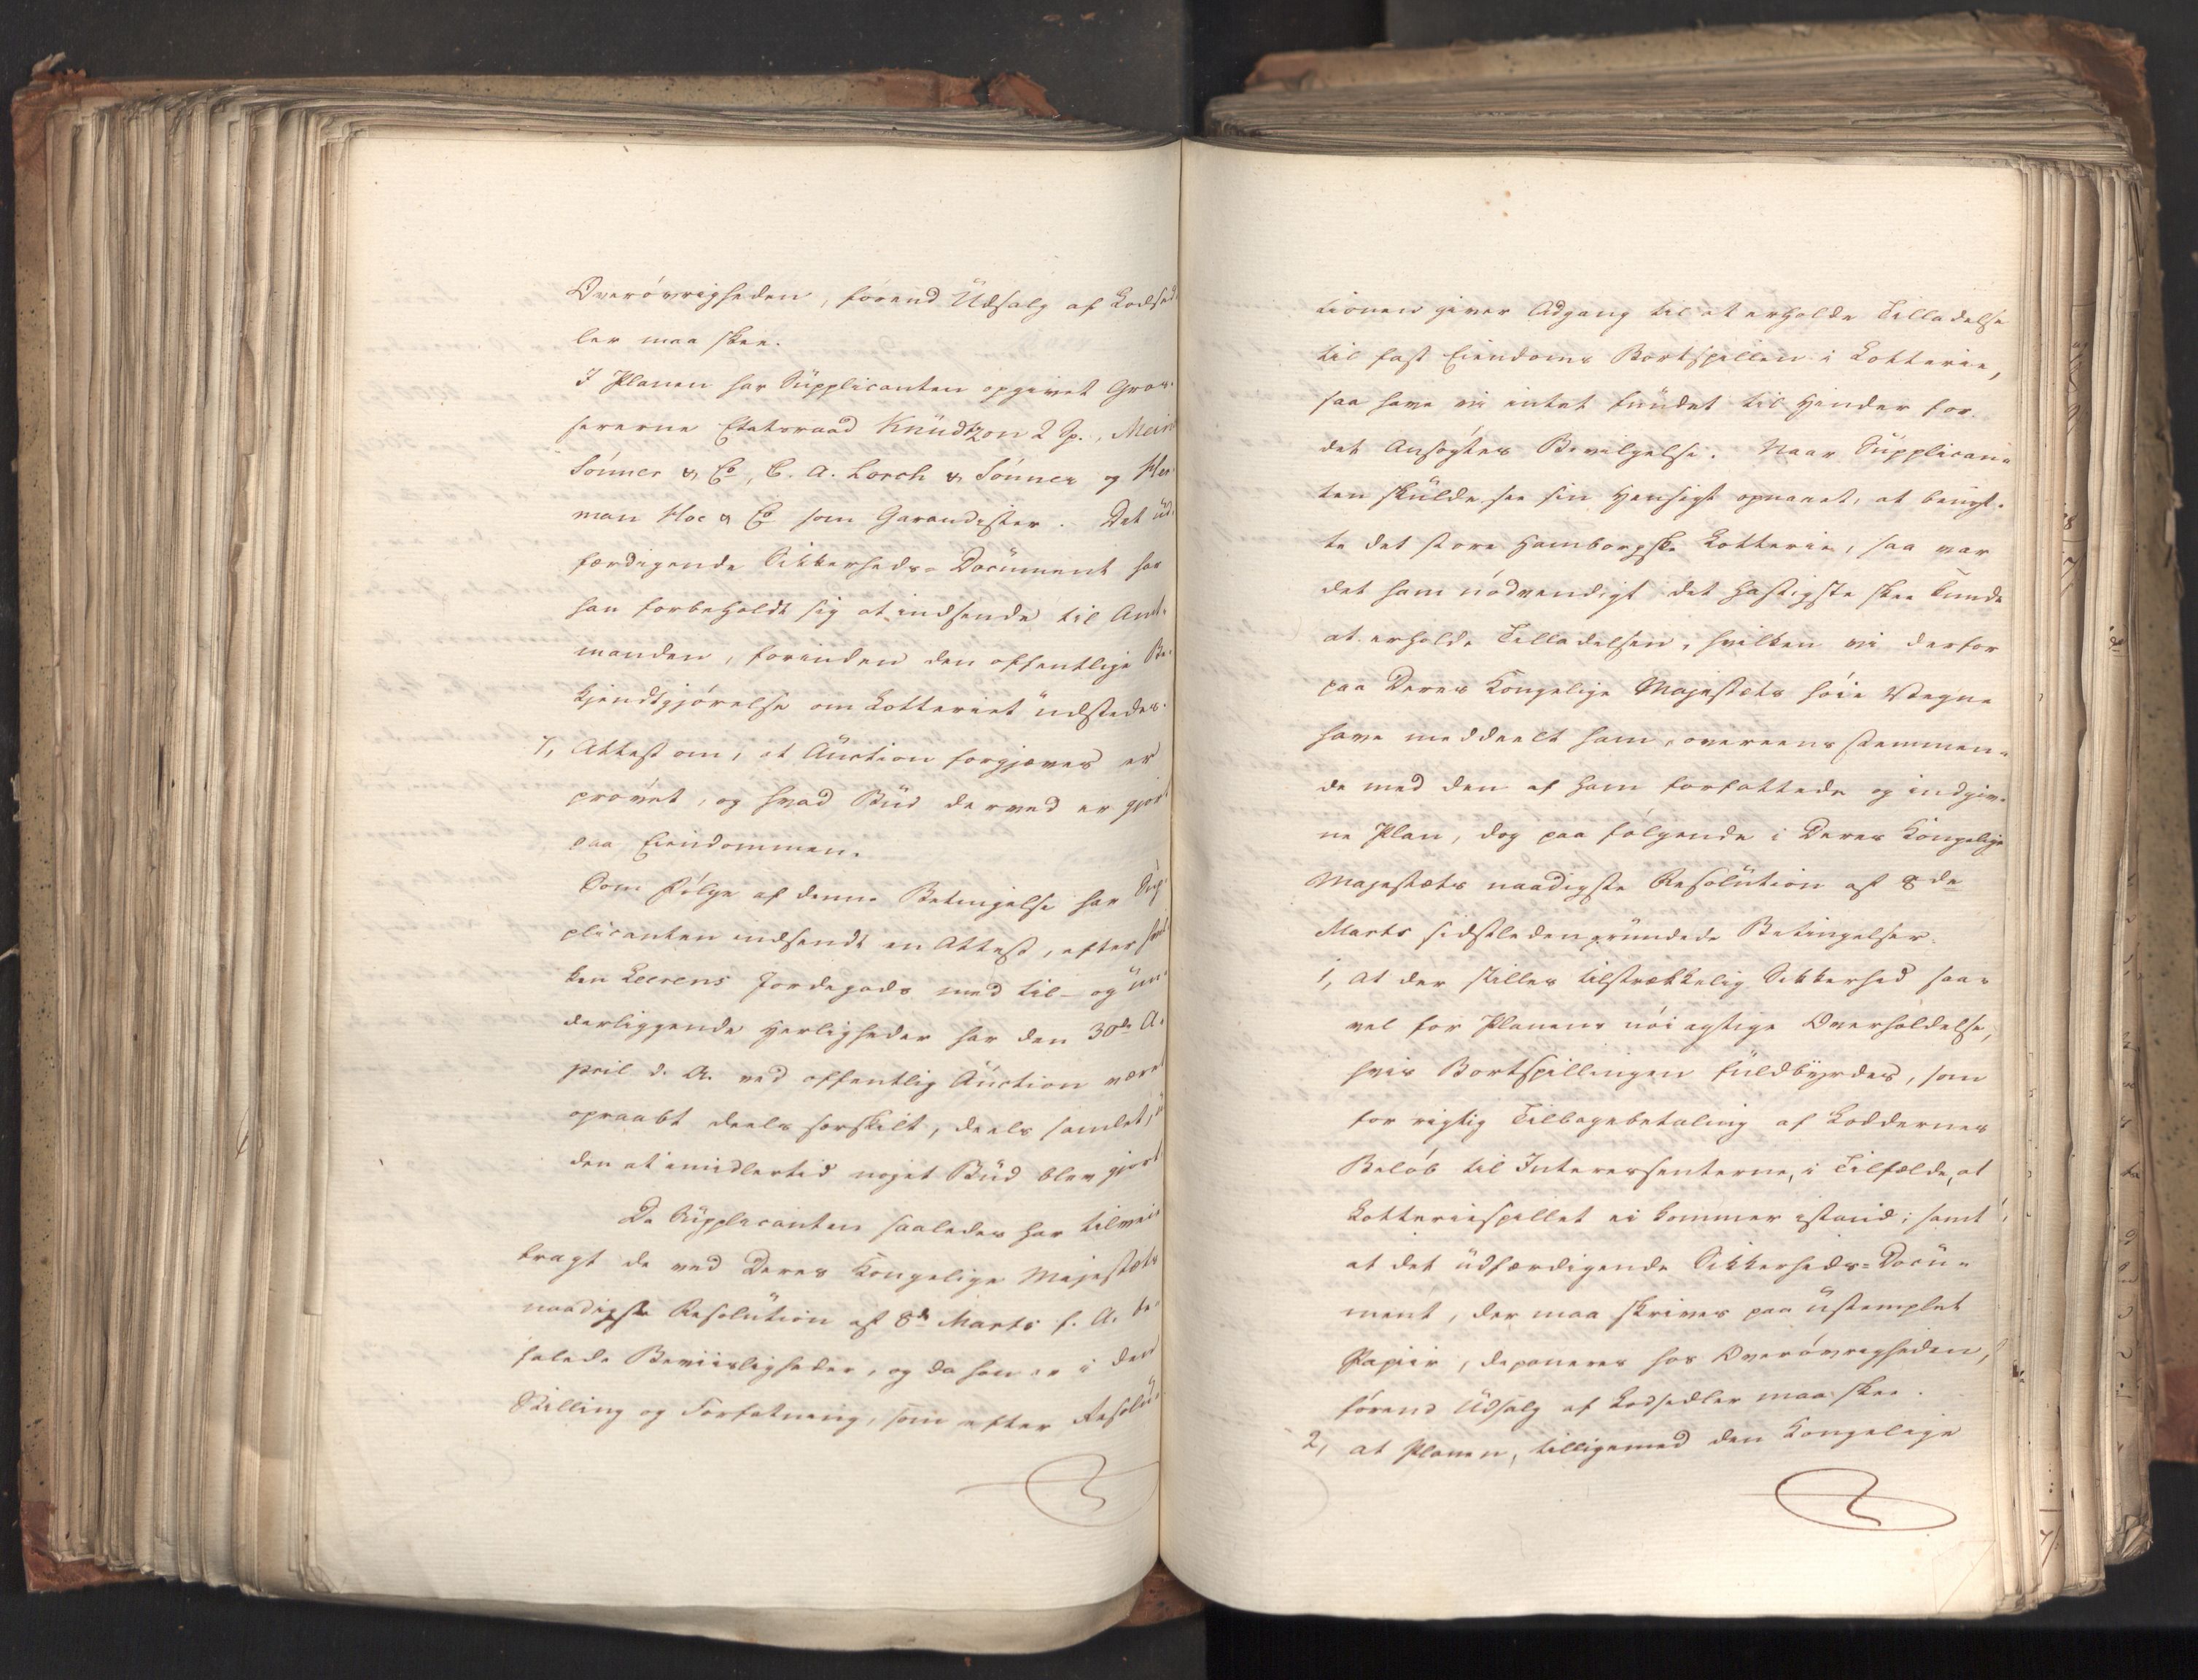 Overövrigheden, förend Udsalg af Lodsed-
ler maa skee.
I Planen har Supplicanten opgivet Gros-
sererne Etatsraad Knudtzon 2 Sp., Mein
Sönner & Co, C. A. Lorch & Sönner og Her-
man Hoe & Co som Garandister. Det ud-
færdigende Sikkerheds-Document har
han forbeholdt sig at indsende til Amt-
manden, forinden den offentlige Be-
kjendtgjörelse om Lotteriet udstedes.
7, Attest om, at Auction forgjæves er
prövet, og hvad Bud derved er gjort
paa Eiendommen.
Som Fölge af denne Betingelse har Sup-
plicanten indsendt en Attest, efter hvil-
ken Leerens Jordegods med til- og un-
derliggende Herligheder har den 30de A-
pril d. A. ved offentlig Auction været
opraabt deels særskilt, deels samlet, u-
den at imidlertid noget Bud blev gjort.
Da Supplicanten saaledes har tilveie-
bragt de ved Deres Kongelige Majestæts
naadigste Resolution af 8de Marts f. A. be-
falede Beviisligheder, og da han er i den
Stilling og Forfatning, som efter Resolu-
tionen giver Adgang til at erholde Tilladelse
til fast Eiendoms Bortspillen i Lotterie,
saa have vi intet fundet til Hinder for
det Ansögtes Bevilgelse. Naar Supplican-
ten skulde see sin Hensigt opnaaet, at benyt-
te det store Hamborgske Lotterie, saa var
det ham nödvendigt det hastigste skee kunde
at erholde Tilladelsen, hvilken vi derfor
paa Deres Kongelige Majestæts höie Vegne
have meddeelt ham, overeensstemmen-
de med den af ham forfattede og indgiv-
ne Plan, dog paa fölgende i Deres Kongelige
Majestæts naadigste Resolution af 8de
Marts sidstleden grundede Betingelser.
1, at der stilles tilstrækkelig Sikkerhed saa-
vel for Planens nöiagtige Overholdelse,
hvis Bortspillingen fuldbyrdes, som
for rigtig Tilbagebetaling af Loddernes
Belöb til Interessenterne, i Tilfælde, at
Lotteriespillet ei kommer istand; samt
at det udfærdigende Sikkerheds-Docu-
ment, der maa skrives paa ustemplet
Papiir, deponeres hos Overövrigheden,
förend Udsalg af Lodsedler maa skee.
2, at Planen, tilligemed den Kongelige